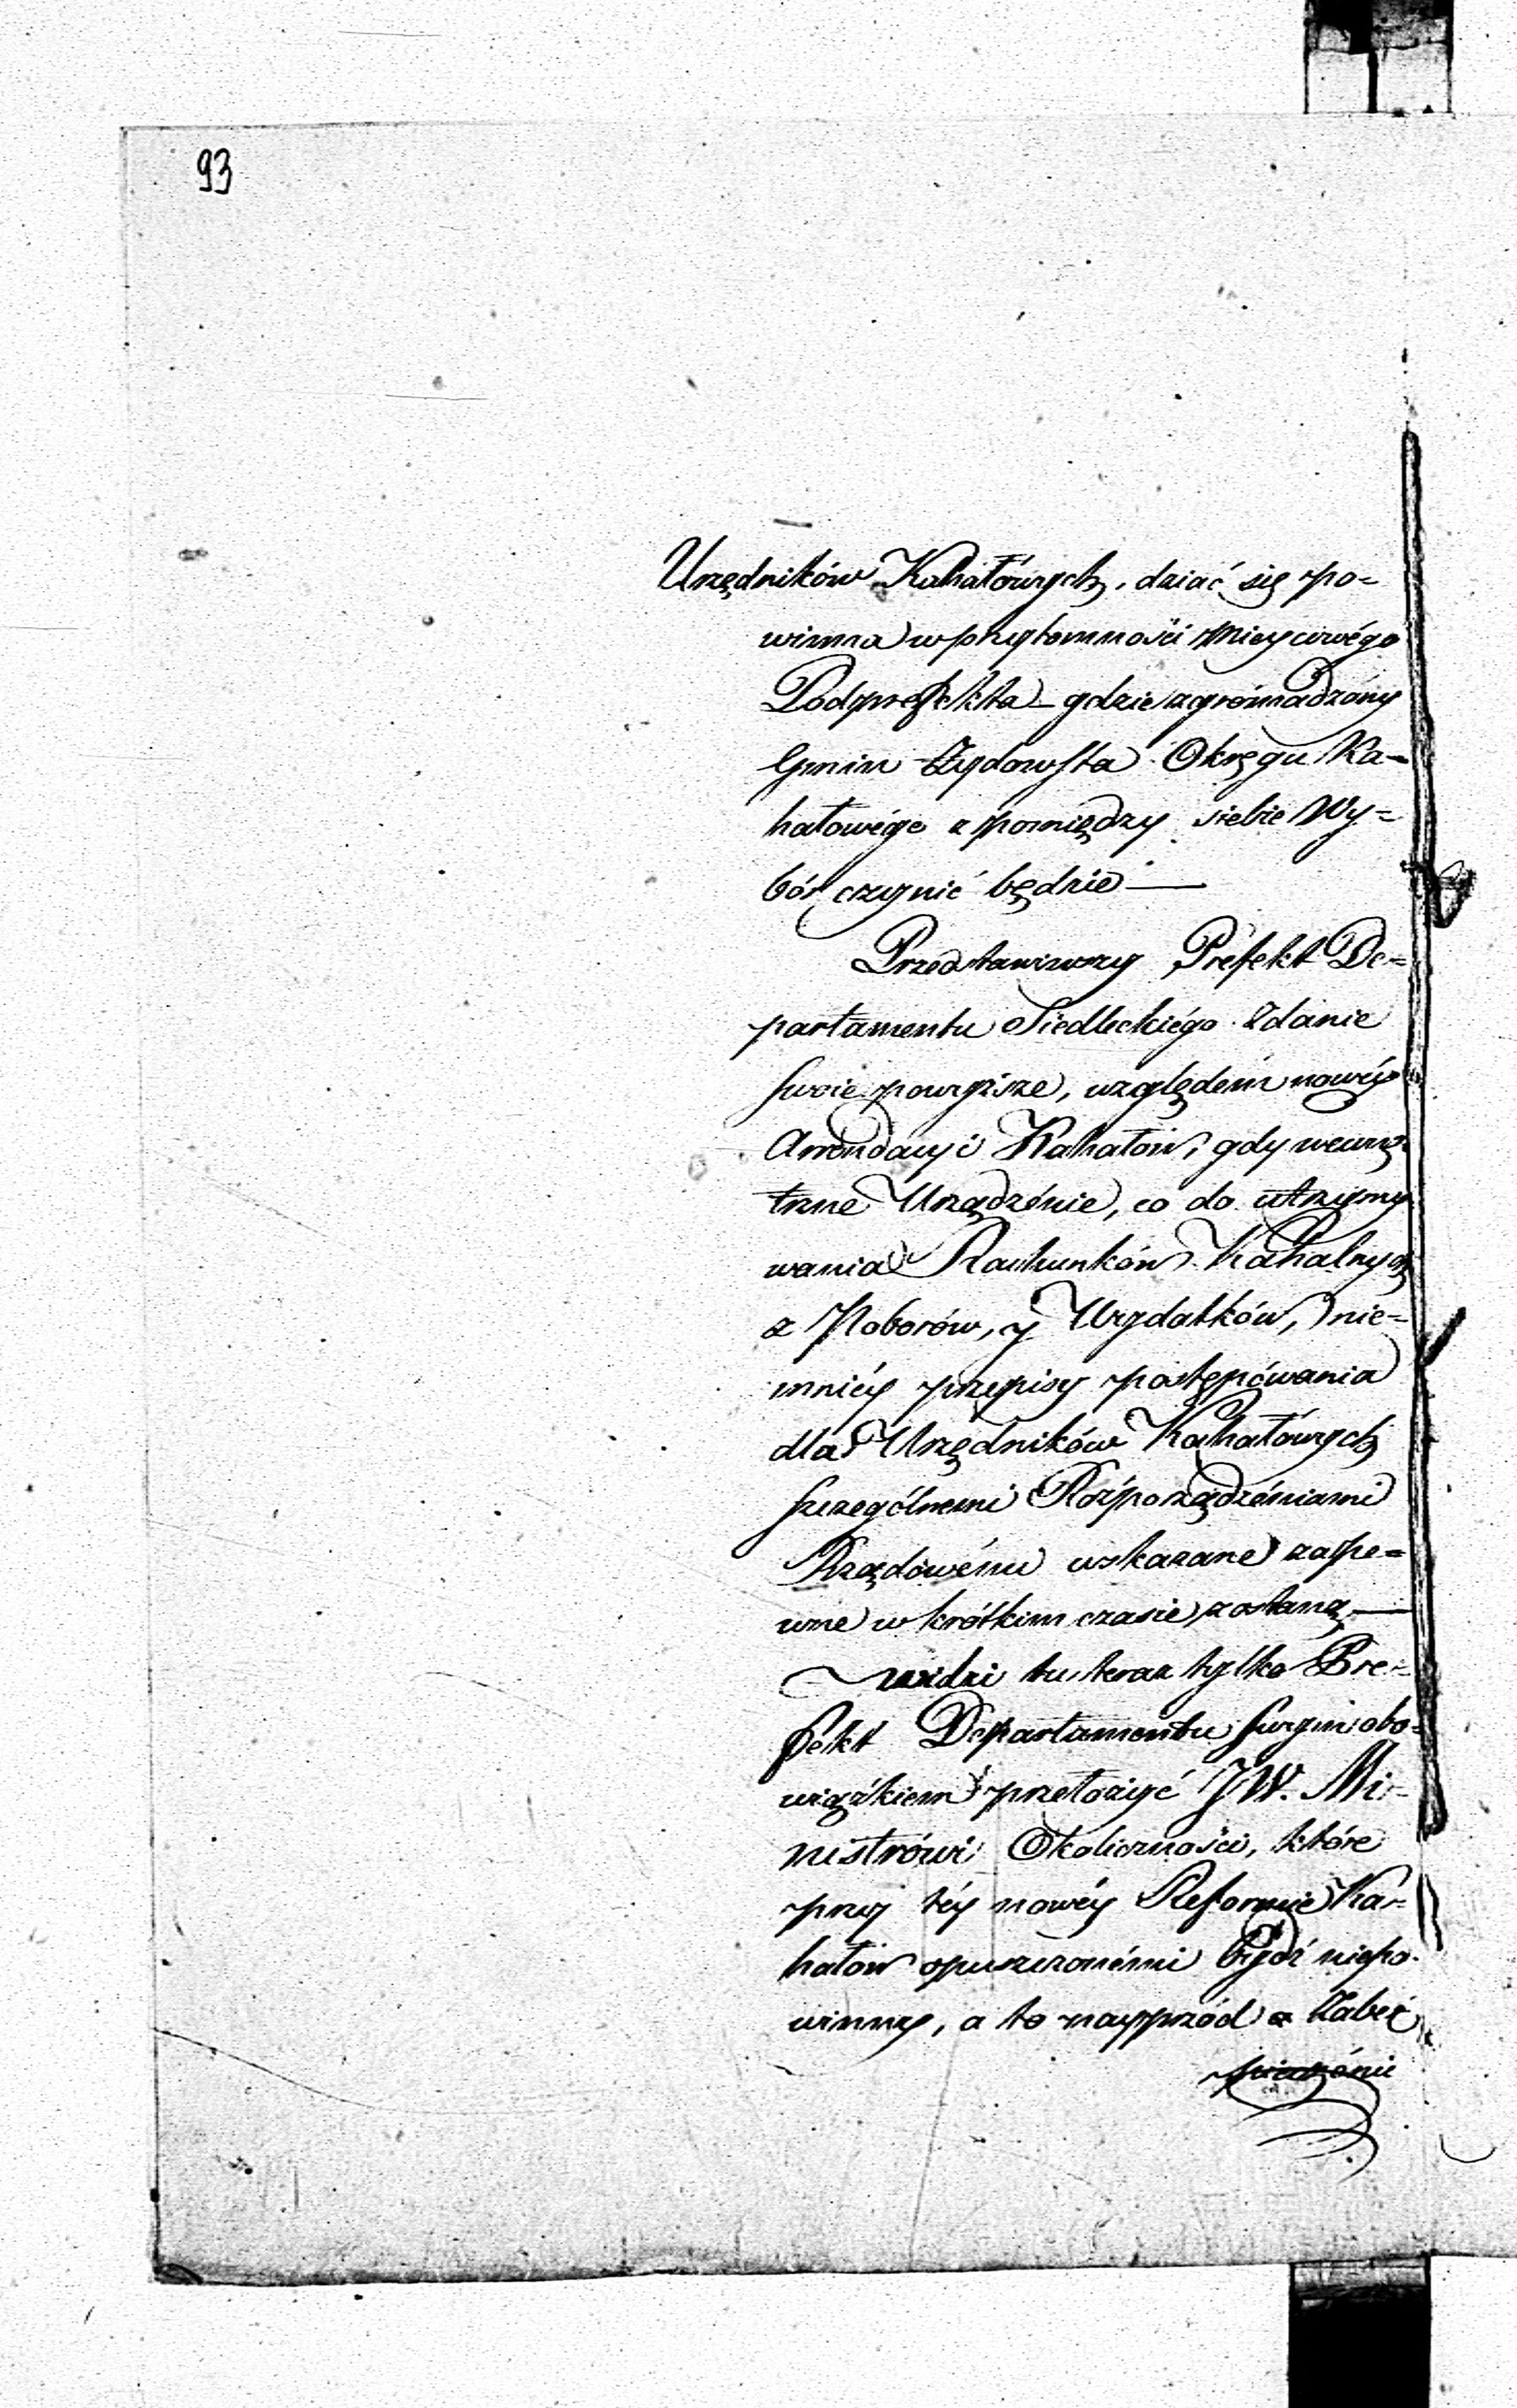 93
Urzędników Kahałówych, dziać się po=
winna w przytomności Mieyscowégo
Podprefekta – gdzie zgrómadzóny
Gmin Żydowska Okręgu Ka=
hałowégo z pomiędzy siebie Wy=
bór czynić będzie —
Przedstawiwszy Prefekt De=
partamentu Siedleckiégo Zdanie
swoie powyższe, względem nowéy
Arrondacyi Kahałów, gdy wewnę
trzne Urządzénie, co do utrzymy
wania Rachunków Kahalnych
z Poborów, y Wydatków, nie=
mniéy przepisy postępówania
dla Urzędników Kahałówych
szczególnemi Rozporządzéniami
Rządówému wskazane zape=
wne w krótkim czasie zostaną —
widzi tu teraz tylko Pre=
fekt Departamentu swym obo=
wiązkiem przełożyć JW. Mi=
nistrówi Okoliczności, które
przy téy nowéy Reformie Ka=
hałów opuszczonémi bydź niepo=
winny, a to nayprzód z Zabeś
pieczénie